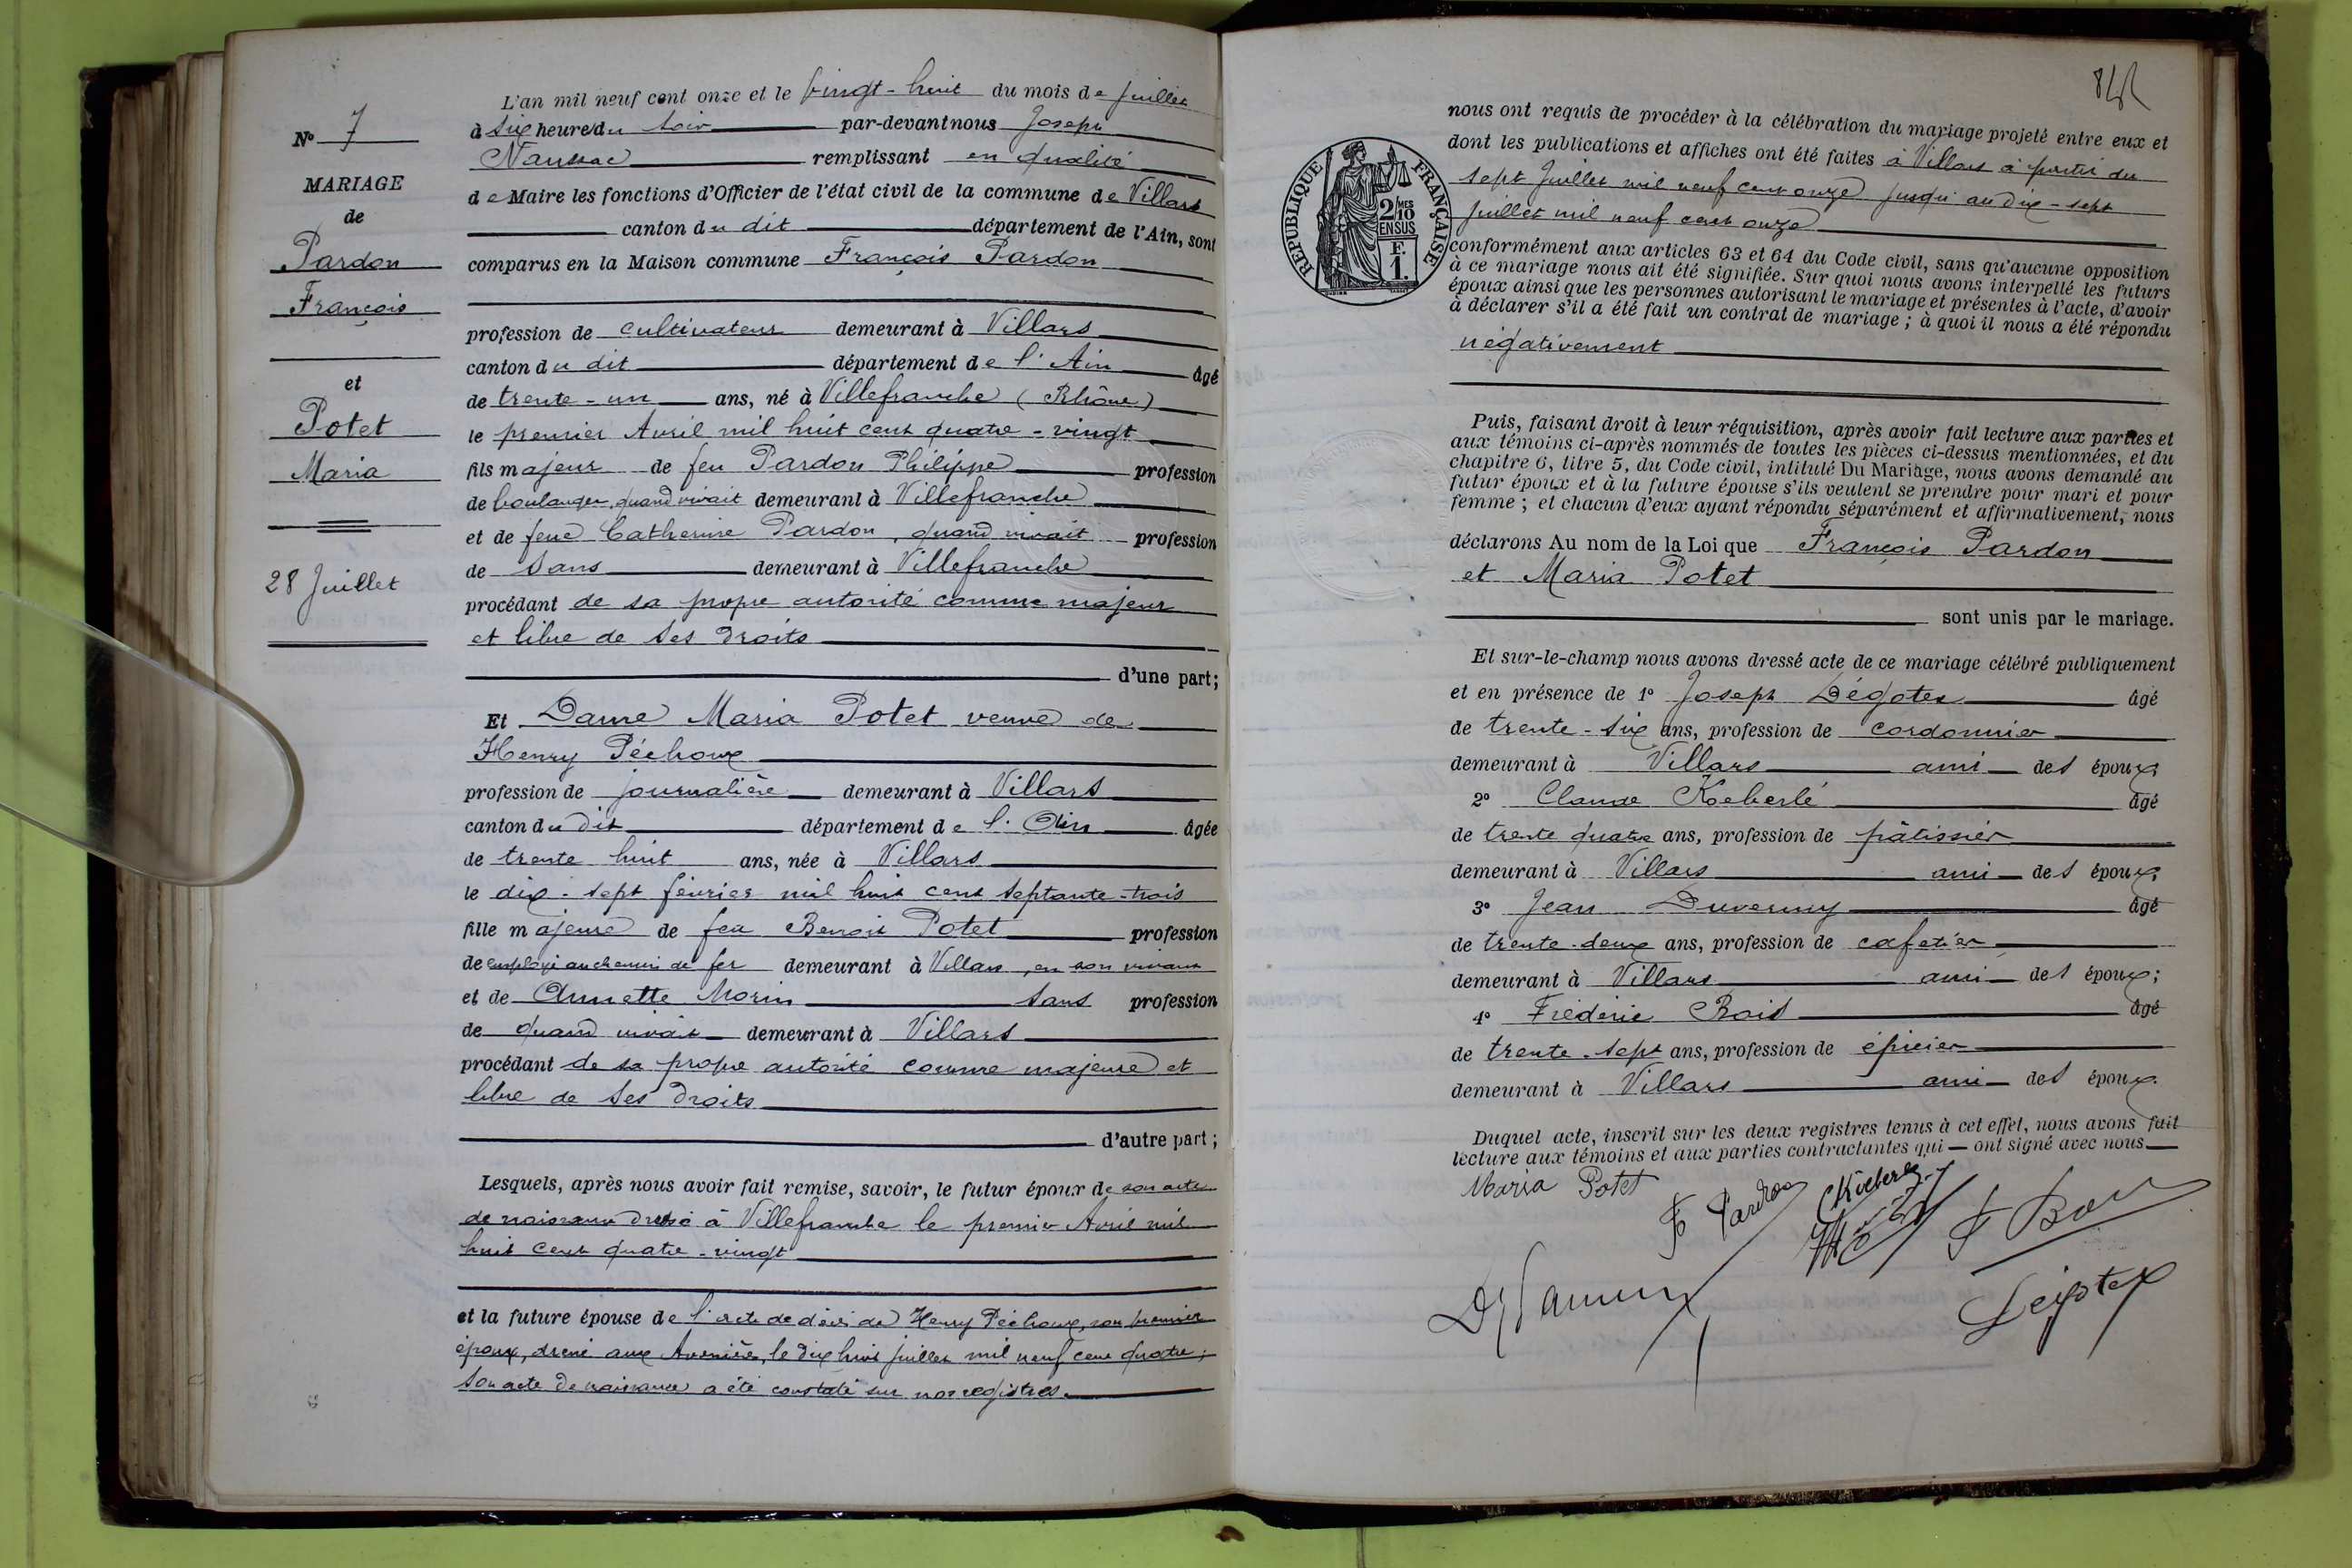 N° 7
MARIAGE
de
Pardon
François
et
Potet
Maria
28 Juillet
L'an mil neuf cent onze et le vingt-huit du mois de juillet
à six heure du soir par-devant nous Joseph
remplissant en qualité
de Maire les fonctions d'Officier de l'état civil de la commune de Villars
canton du dit département de l'Ain, sont
comparus en la Maison commune François Pardon
profession de cultivateur demeurant à Villars
canton du dit département de l'Ain âgé
de trente-un ans, né à Villefranche (Rhône)
le premier Avril mil huit cent quatre-vingt
fils majeur de feu Pardon Philippe profession
de boulanger, quand vivait demeurant à Villefranche
et de feue Catherine Pardon, quand vivait profession
de sans demeurant à Villefranche
procédant de sa propre autorité comme majeur
et libre de ses droits
d'une part;
Et Dame Maria Potet veuve de
Henry Péchoux
profession de journalière demeurant à Villars
canton du dit département de l'Ain âgée
de trente huit ans, née à Villars
le dix-sept février mil huit cent septante-trois
fille majeure de feu Benoit Potet profession
de employé au chemin de fer demeurant à Villars, en son vivant
et de Annette Morin sans profession
de quand vivait demeurant à Villars
procédant de sa propre autorité comme majeure et
libre de ses droits
d'autre part;
Lesquels, après nous avoir fait remise, savoir, le futur époux de son acte
de naissance dressé à Villefranche le premier Avril mil
huit cent quatre-vingt
et la future épouse de l'acte de décès de Henry Péchoux, son premier
époux, dressé aux Avenières, le dix huit juillet mil neuf cent quatre;
son acte de naissance a été constaté sur nos registres.
nous ont requis de procéder à la célébration du mariage projeté entre eux et
dont les publications et affiches ont été faites à Villars à partir du
sept Juillet mil neuf cent onze jusqu'au dix-sept
juillet mil neuf cent onze
RÉPUBLIQUE FRANÇAISE
2 MES
10
EN SUS
F.
1.
conformément aux articles 63 et 64 du Code civil, sans qu'aucune opposition
à ce mariage nous ait été signifiée. Sur quoi nous avons interpellé les futurs
époux ainsi que les personnes autorisant le mariage et présentes à l'acte, d'avoir
à déclarer s'il a été fait un contrat de mariage; à quoi il nous a été répondu
négativement
Puis, faisant droit à leur réquisition, après avoir fait lecture aux parties et
aux témoins ci-après nommés de toutes les pièces ci-dessus mentionnées, et du
chapitre 6, titre 5, du Code civil, intitulé Du Mariage, nous avons demandé au
futur époux et à la future épouse s'ils veulent se prendre pour mari et pour
femme; et chacun d'eux ayant répondu séparément et affirmativement, nous
déclarons Au nom de la Loi que François Pardon
et Maria Potet
sont unis par le mariage.
Et sur-le-champ nous avons dressé acte de ce mariage célébré publiquement
et en présence de 1° Joseph Dégotex âgé
de trente-six ans, profession de cordonnier
demeurant à Villars ami des époux;
2° Claude Koeberlé âgé
de trente quatre ans, profession de pâtissier
demeurant à Villars ami des époux;
3° Jean Duvernay âgé
de trente-deux ans, profession de cafetier
demeurant à Villars ami des époux;
4° Frédéric Bois âgé
de trente-sept ans, profession de épicier
demeurant à Villars ami des époux.
Duquel acte, inscrit sur les deux registres tenus à cet effet, nous avons fait
lecture aux témoins et aux parties contractantes qui ont signé avec nous
Maria Potet
F Pardon